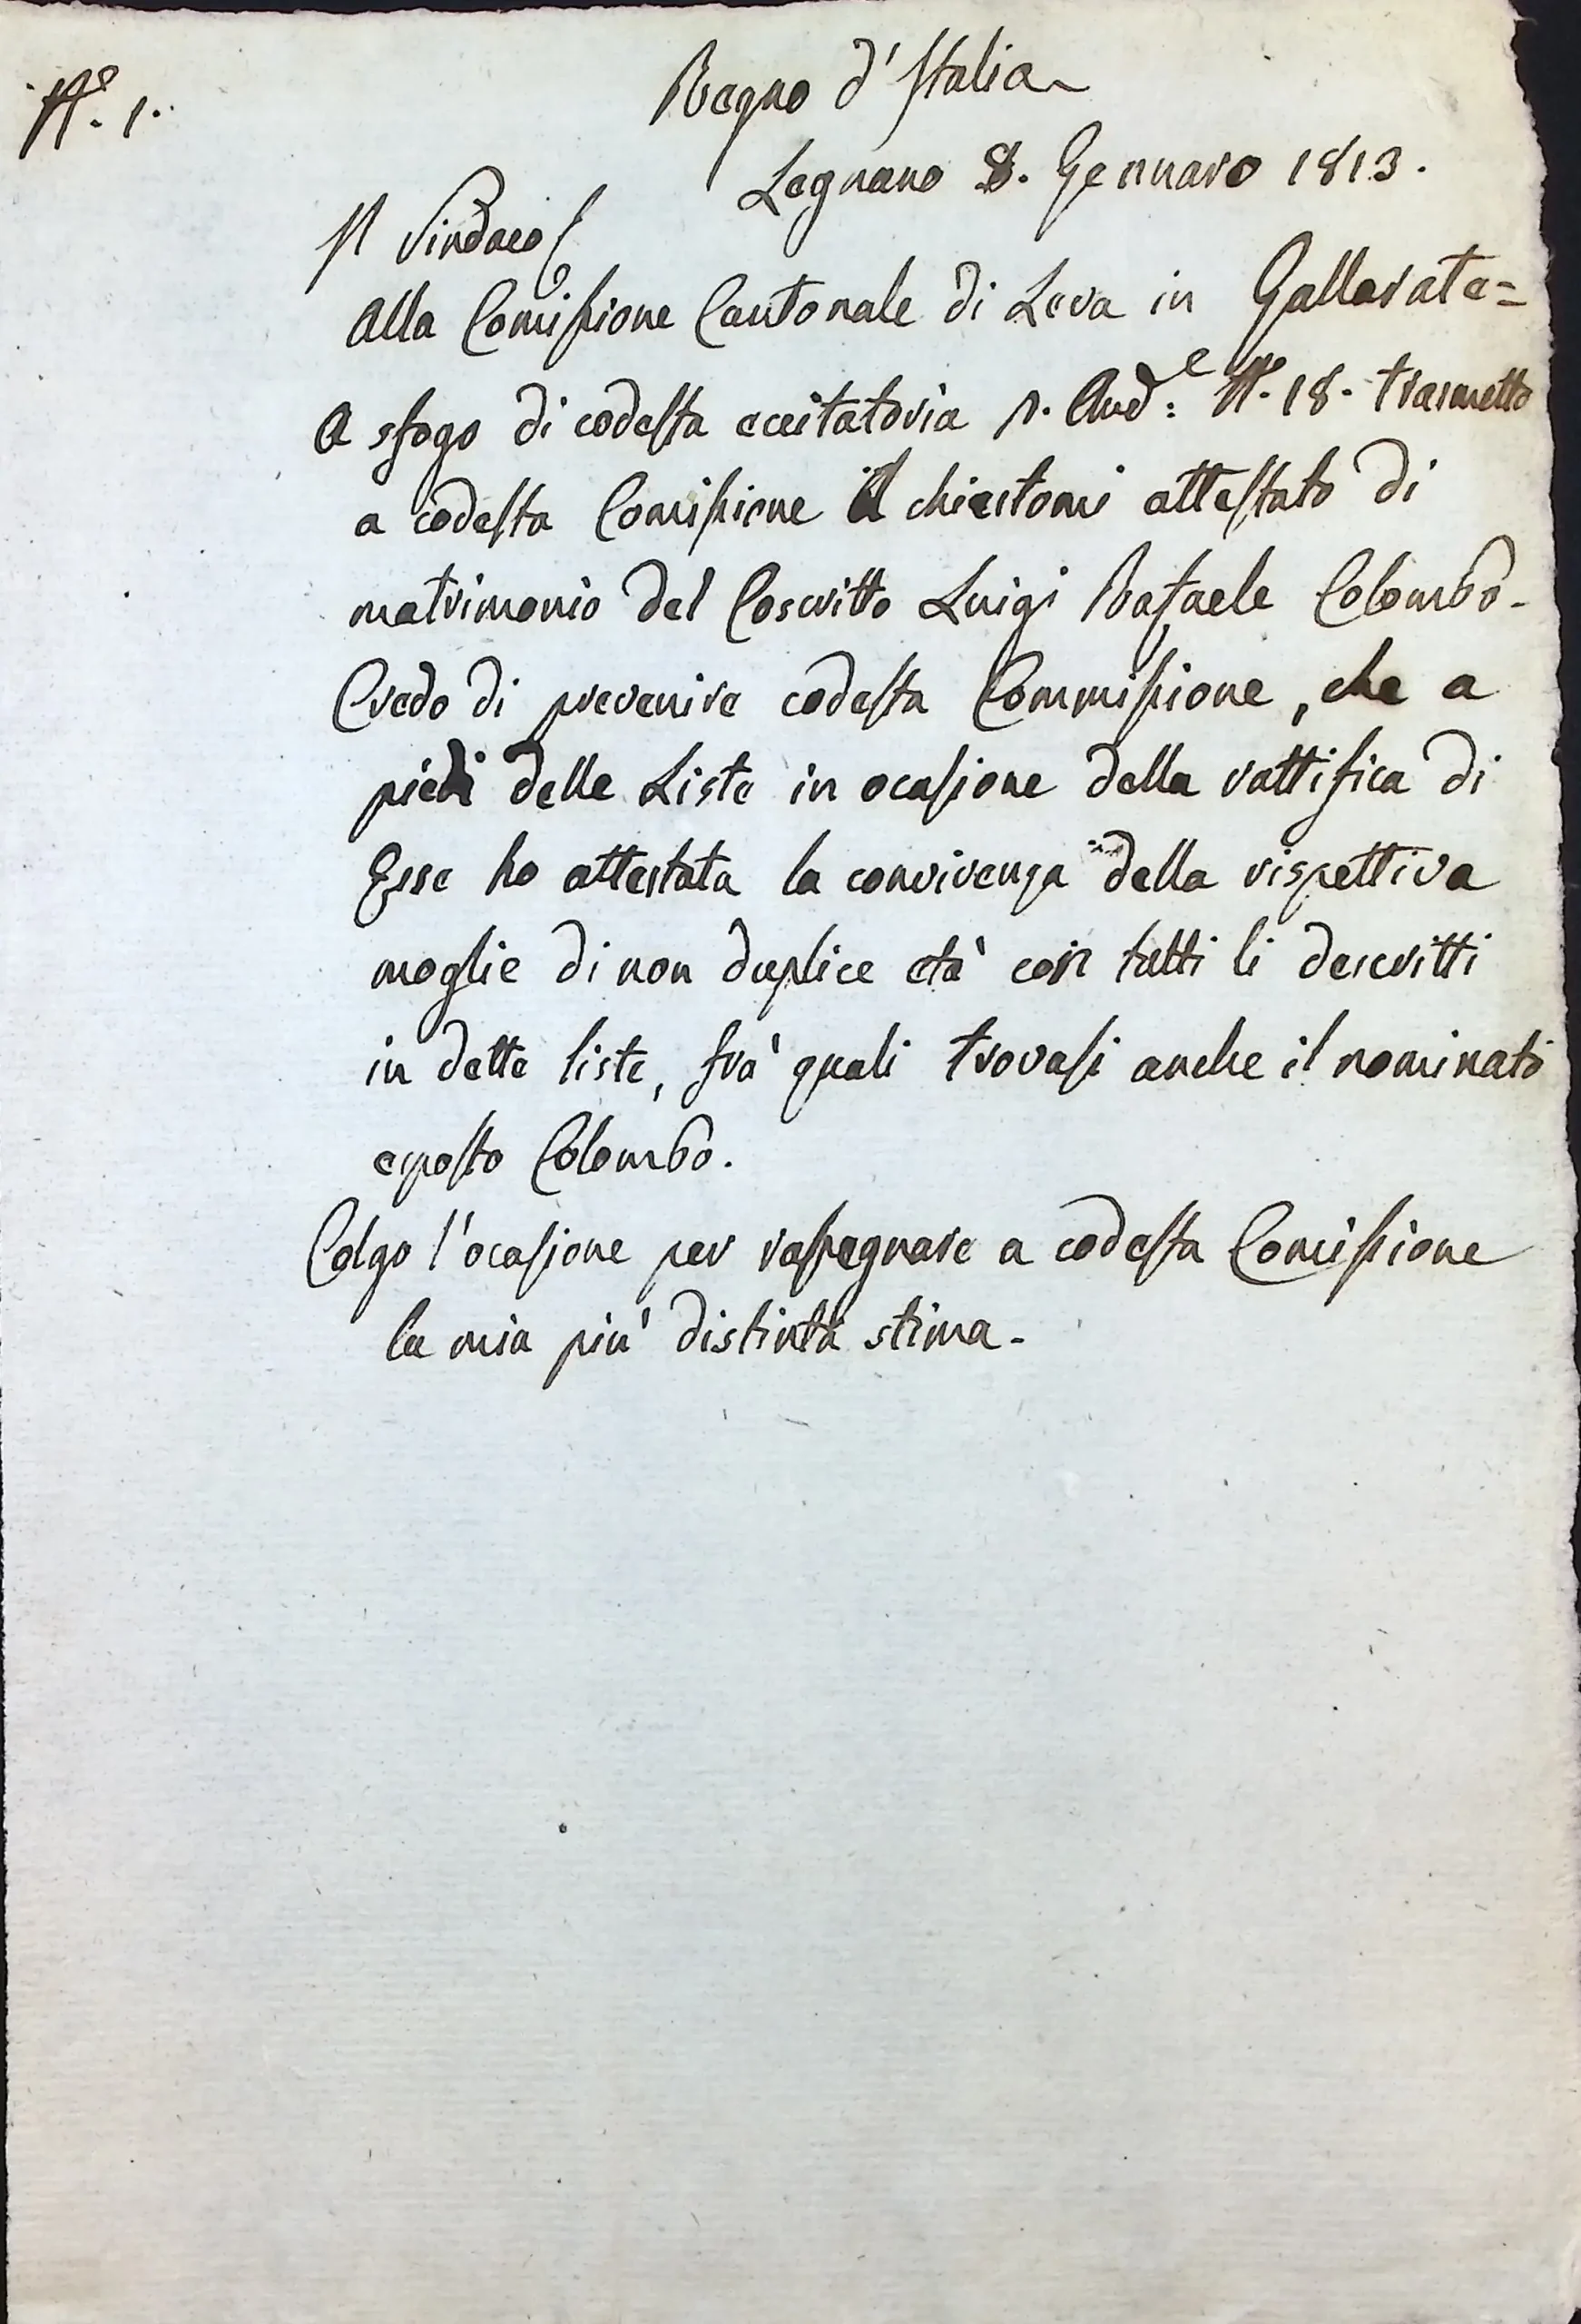 N.° 1.
Regno d'Italia
Legnano 8. Gennaro 1813.
Il Sindaco
Alla Comissione Cantonale di Leva in Gallarate=
A sfogo di codesta eccitatoria 1. And.e N. 18. trasmetto
a codesta Comissione il chiestomi attestato di
matrimonio del Coscritto Luigi Rafaele Colombo-
Credo di prevenire codesta Commissione, che a
piedi delle Liste in ocasione della rattifica di
Esse ho attestata la convivenza della rispettiva
moglie di non duplice età con tutti li descritti
in dette liste, frà quali trovasi anche il nominato
esposto Colombo.
Colgo l'ocasione per rassegnare a codesta Comissione
la mia più distinta stima-